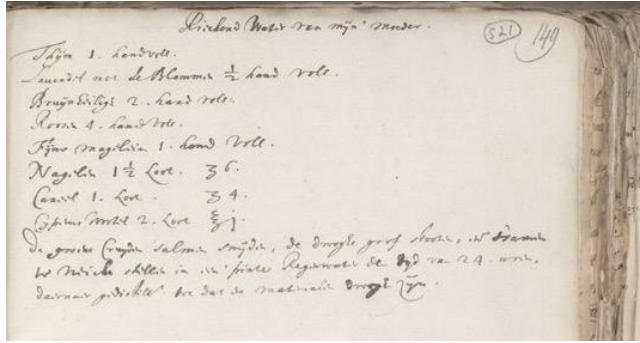 Riekend Water van mijn moeder. 521 149
Thijm 1. handvoll.
Lavendel met de Blommen ½ hand voll.
Bruijnheiligh 2. hand voll.
Roosen 4. hand voll.
Fijne magelein 1. hand voll.
Nagelen 1 ½ Loot. ʒ 6.
Caneel 1. Loot. ʒ 4.
wortel 2. Loot ℥ j.
De groene Cruijden salmen snijden, de drooghe grof stooten, en
te weicke stellen in een pinte Regenwater de tijd van 24. uren,
daernaer gedistill. tot dat de materialen droogh zijn.